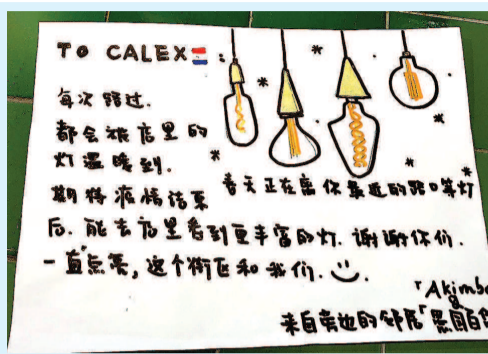 TO CALEX :
每次路过.
都会被店里的
灯温暖到.
期待疫情结束
春天正在离你最近的路口等灯
后.能去店里看到更丰富的灯.谢谢你们.
一直点亮,这个街区和我们.
「Akimbo
来自旁边的邻居「黑国白